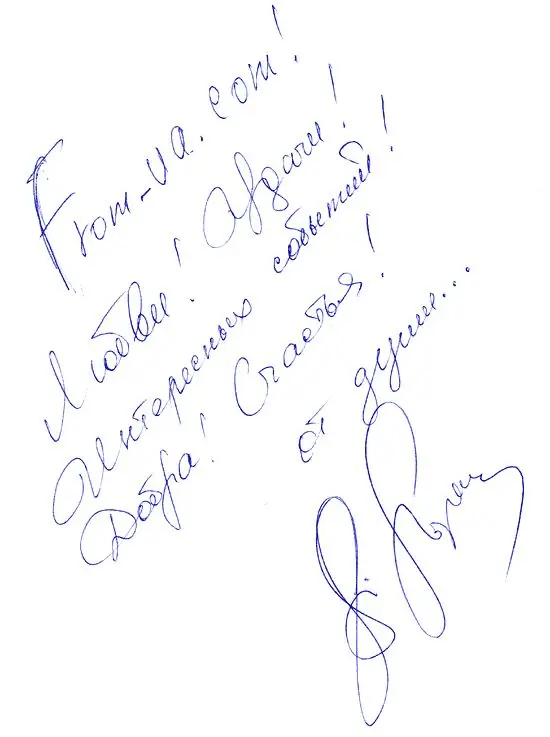 From-ua.com!
Любви! Удачи!
Интересных событий!
Добра! Счастья!
от души...